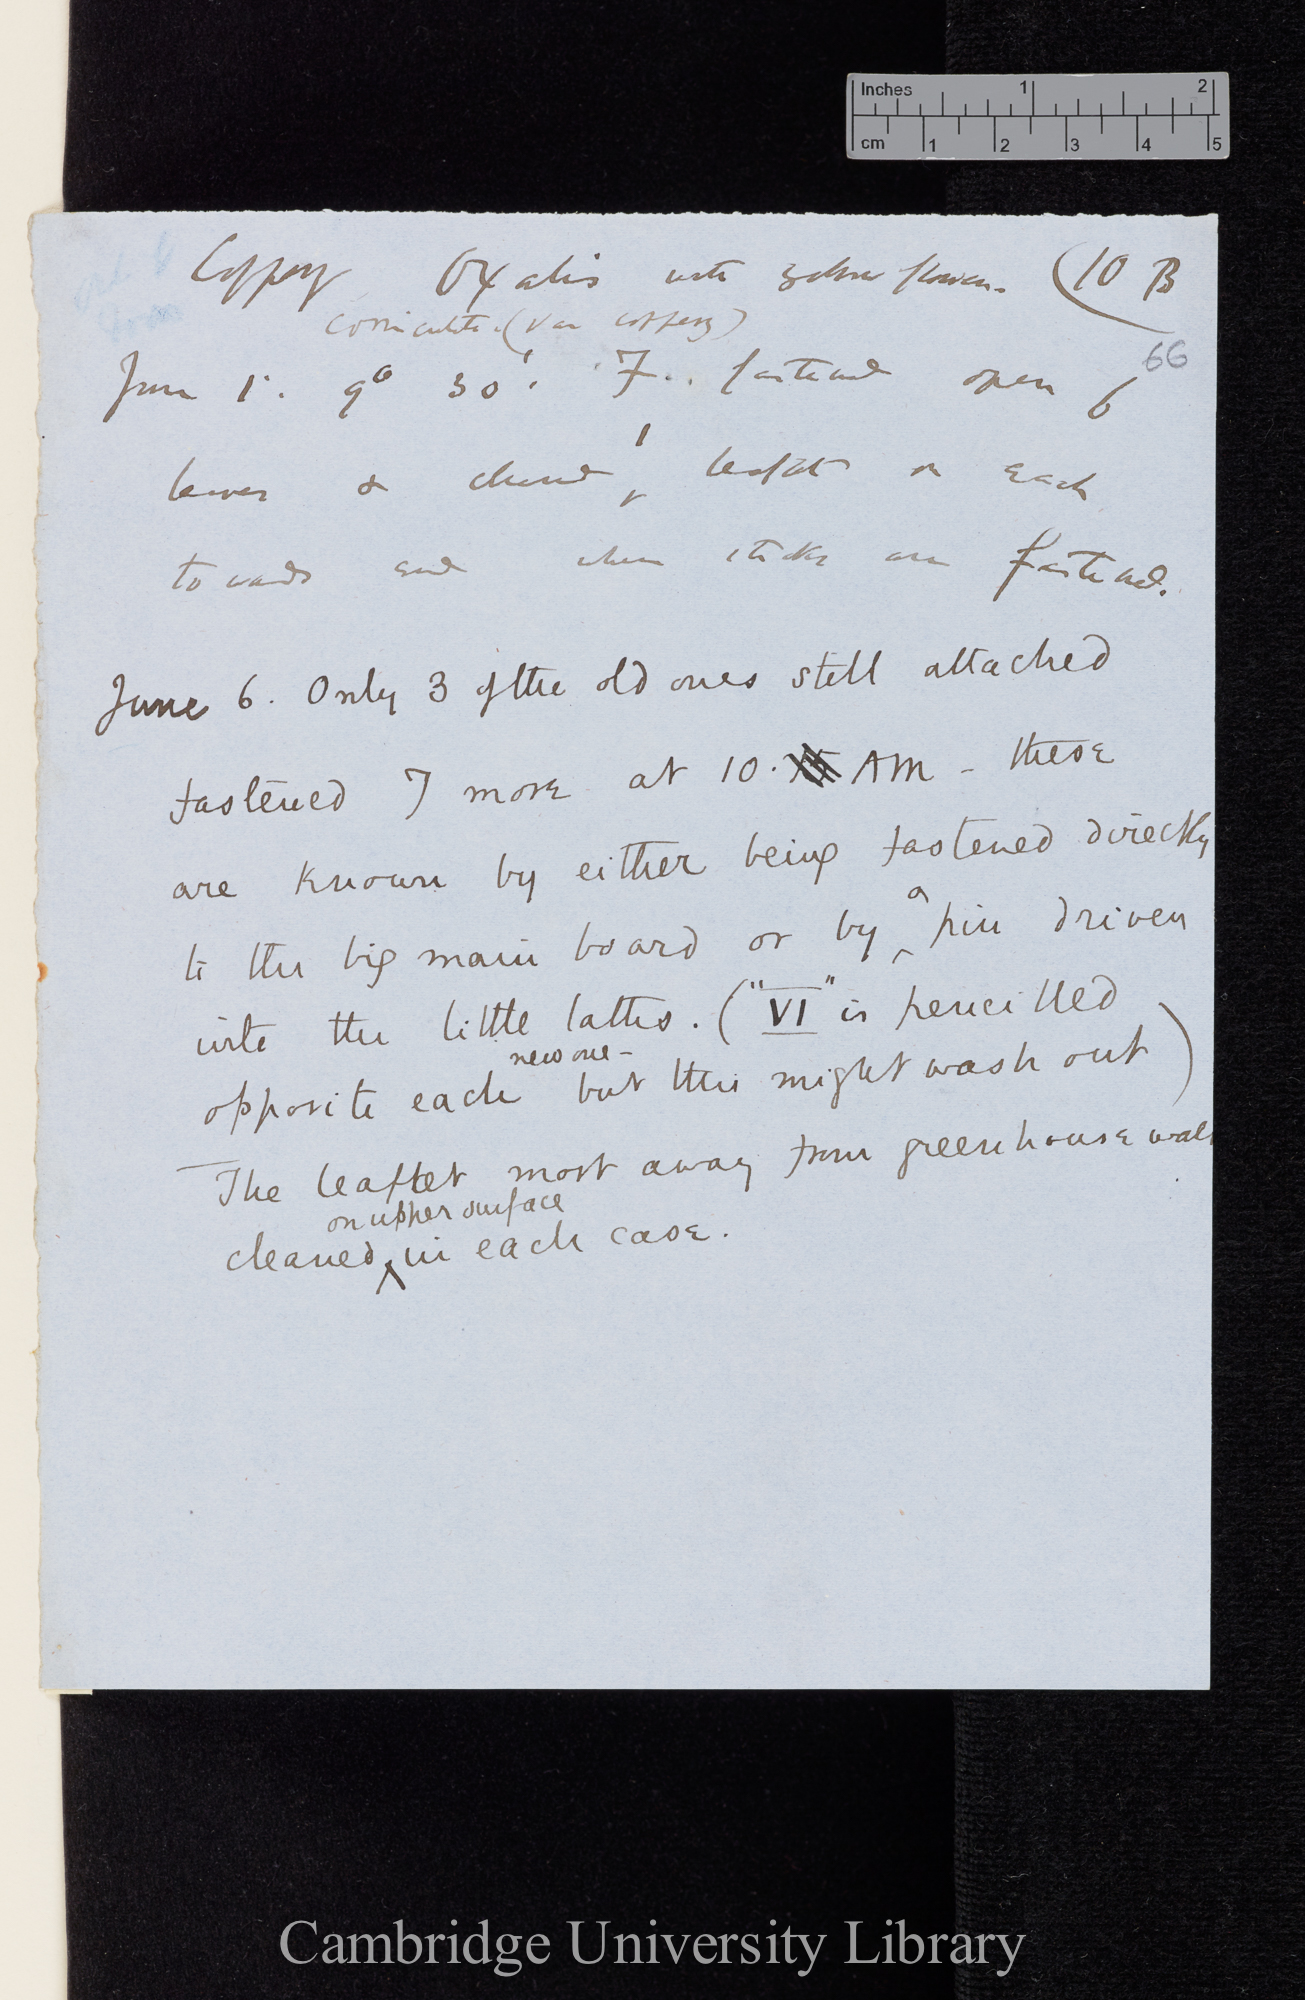 Inches 1 2
cm 1 2 3 4 5
Coppery Oxalis with yellow flowers. (10 B
corniculata. (var coppery)
66
June 1. 9° 30'. 7.. fastened open 6
leaves & cleaned 1 leaflet on each
towards end where sticks are fastened.
June 6. Only 3 of the old ones still attached
fastened 7 more at 10. AM - these
are known by either being fastened directly
to the big main board or by a pin driven
into the little laths. ("VI" is pencilled
opposite each new one - but this might wash out)
The leaflet most away from greenhouse wall
cleaned on upper surface in each case.
Cambridge University Library